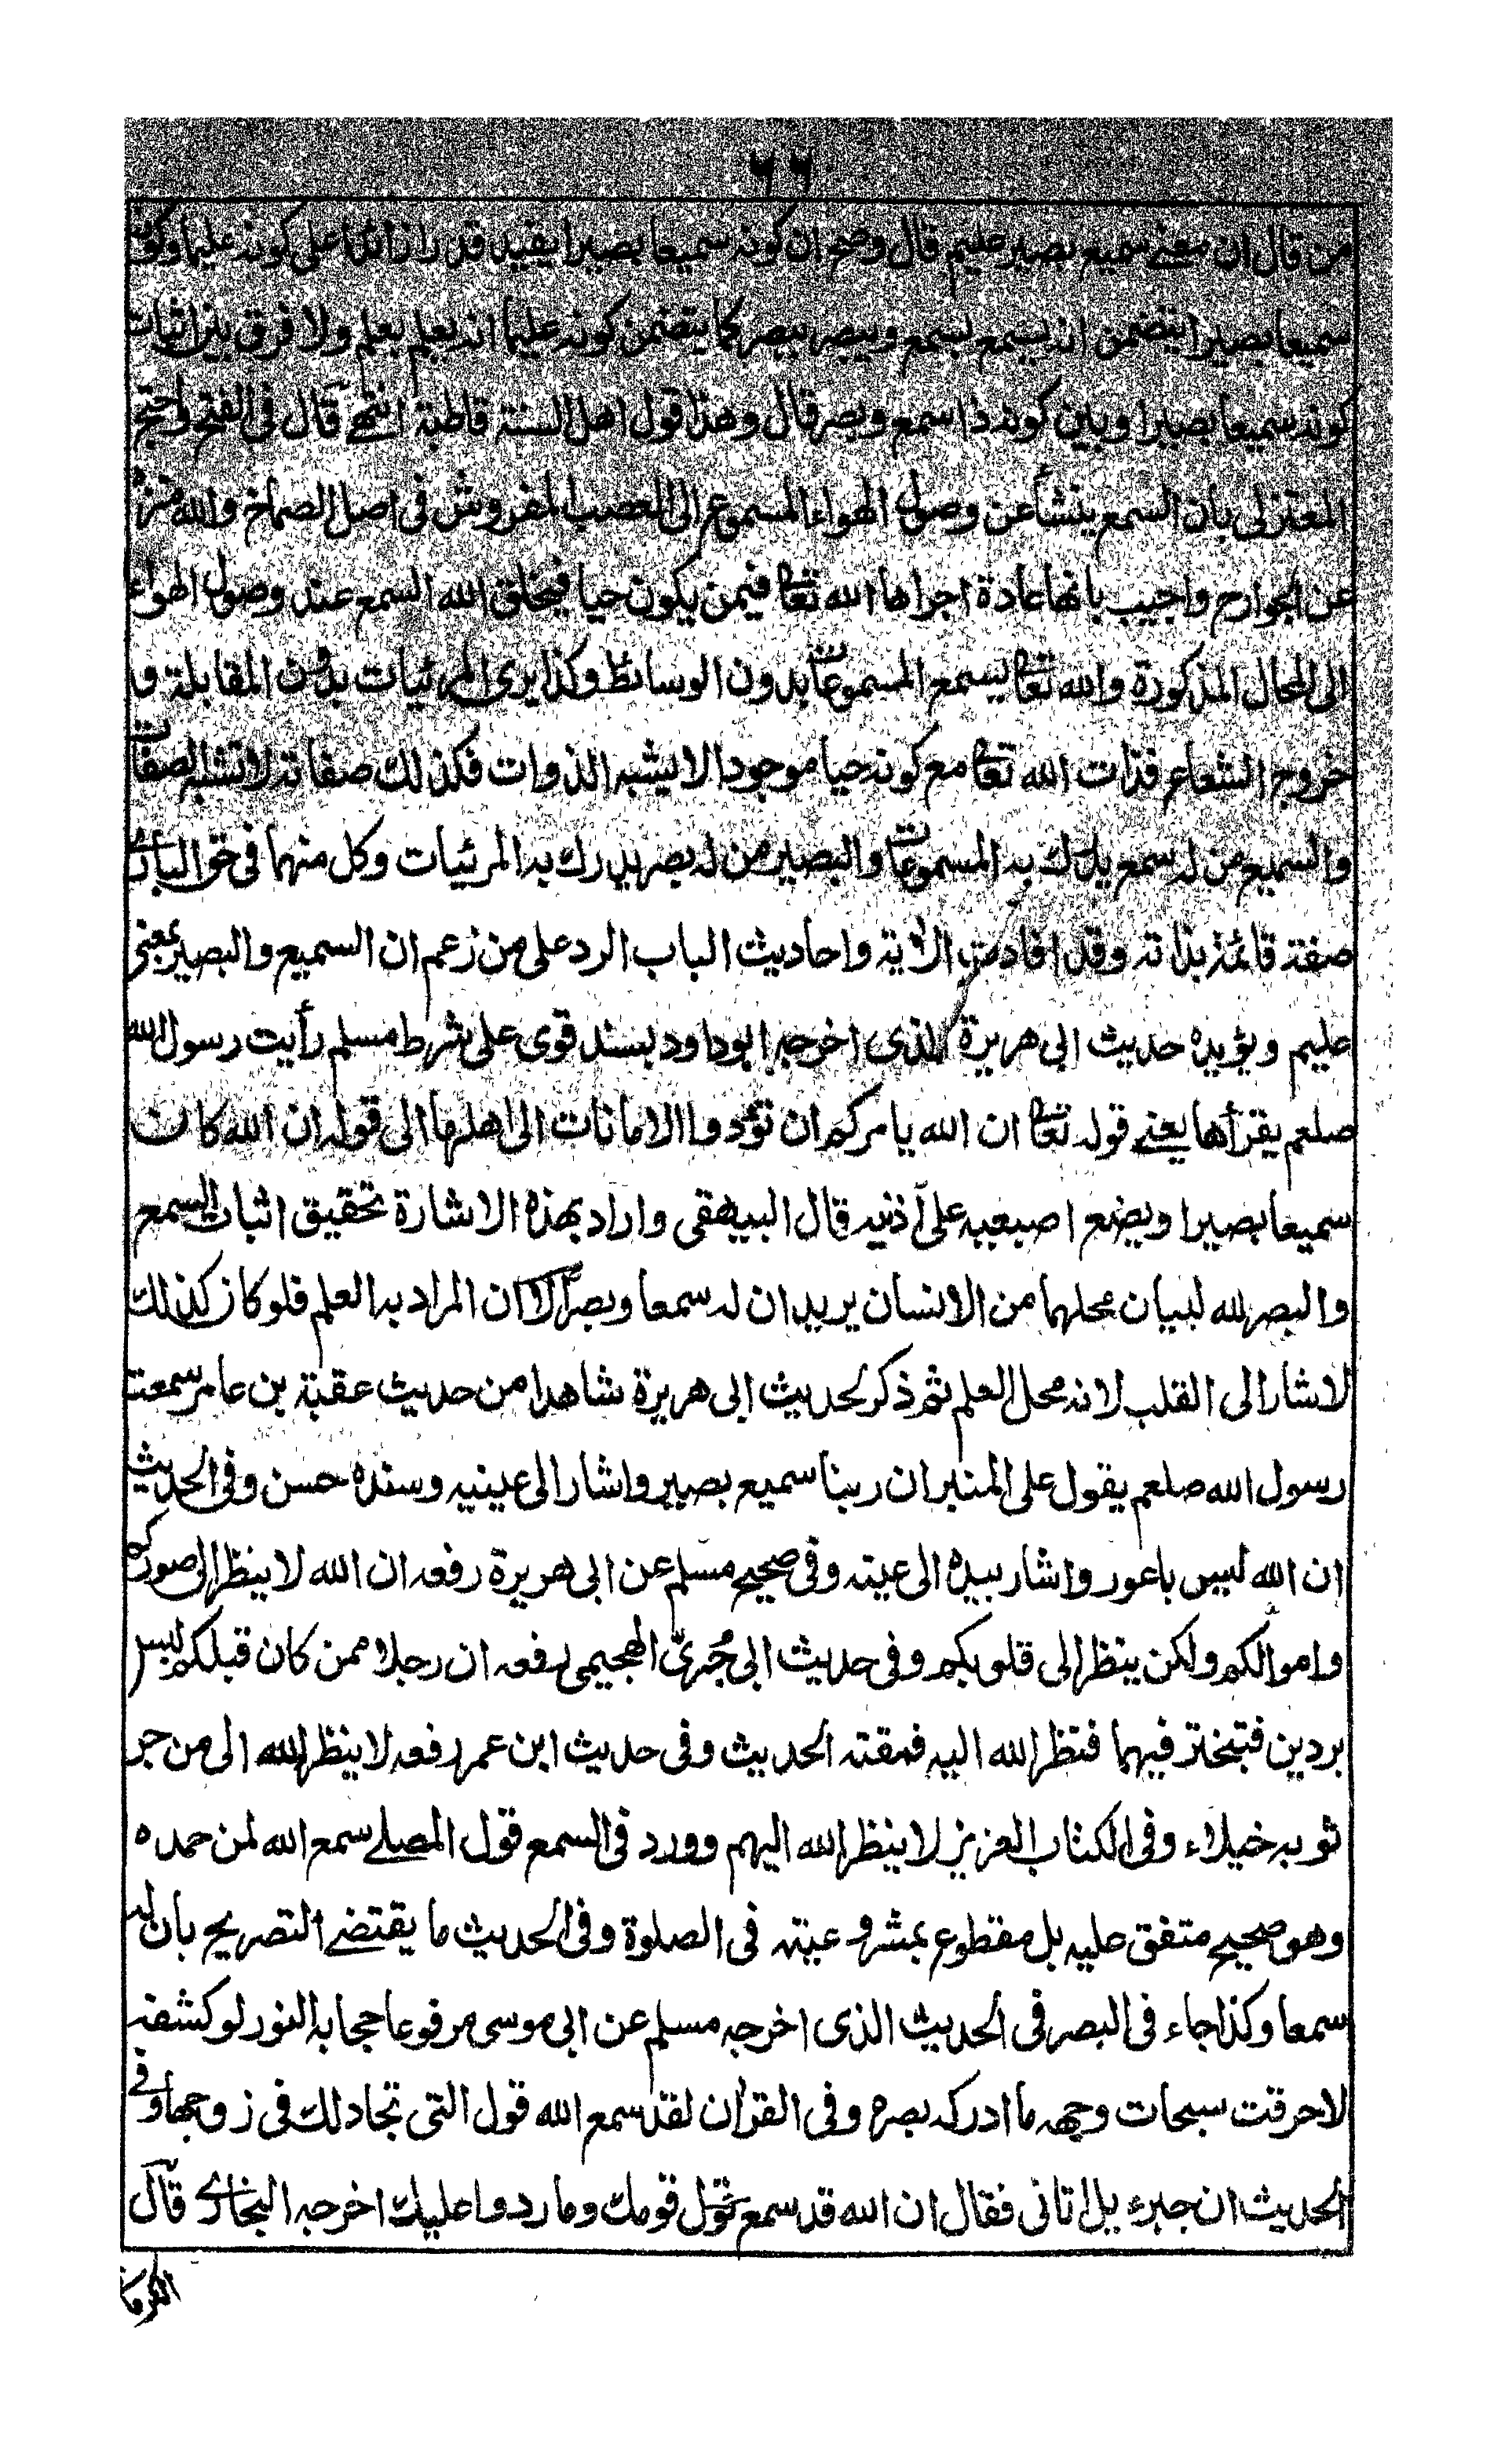 ٦٦
من قال ان معنے سميع بصير عليم قال وصح ان كونه سميعا بصيرا يفيد قدرا زائدا على كونه عليما وكونه
سميعا بصيرا يتضمن انه يسمع بسمع ويبصر ببصر كما يتضمن كونه عليما انه يعلم بعلم ولا فرق بين اثبات
كونه سميعا بصيرا وبين كونه ذا سمع وبصر قال وهذا قول اهل السنة قاطبة انتهے قال فى الفتح واحتج
المعتزلى بان السمع ينشأ عن وصول الهواء المسموع الى العصب المفروش فى اصل الصماخ والله منزه
عن الجوارح واجيب بانها عادة اجراها الله تعا فيمن يكون حيا فيخلق الله السمع عند وصول الهواء
الى المحال المذكورة والله تعا يسمع المسموعات بدون الوسائط وكذا يرى المرئيات بدون المقابلة و
خروج الشعاع فذات الله تعا مع كونه حيا موجودا لا يشبه الذوات فكذلك صفاته لا تشبه الصفات
والسميع من له سمع يدرك به المسموعات والبصير من له بصر يدرك به المرئيات وكل منهما فى حق البارئ
صفة قائمة بذاته وقد افادت الاية واحاديث الباب الرد على من زعم ان السميع والبصير بمعنى
عليم ويؤيده حديث ابى هريرة الذى اخرجه ابوداود بسند قوى على شرط مسلم رأيت رسول الله
صلعم يقرأها يعنے قوله تعا ان الله يامركم ان تؤدوا الامانات الى اهلها الى قوله ان الله كان
سميعا بصيرا ويضع اصبعيه على اذنيه قال البيهقى واراد بهذه الاشارة تحقيق اثبات السمع
والبصر لله لبيان محلهما من الانسان يريد ان له سمعا وبصرا لا ان المراد به العلم فلو كان كذلك
لاشار الى القلب لانه محل العلم ثم ذكر لحديث ابى هريرة شاهدا من حديث عقبة بن عامر سمعت
رسول الله صلعم يقول على المنبر ان ربنا سميع بصير واشار الى عينيه وسنده حسن وفى الحديث
ان الله ليس باعور واشار بيده الى عينه وفى صحيح مسلم عن ابى هريرة رفعه ان الله لا ينظر الى صوركم
واموالكم ولكن ينظر الى قلوبكم وفى حديث ابى جُرىّ الهجيمى رفعه ان رجلا ممن كان قبلكم لبس
بردين فتبختر فيهما فنظر الله اليه فمقته الحديث وفى حديث ابن عمر رفعه لا ينظر الله الى من جر
ثوبه خيلاء وفى الكتاب العزيز لا ينظر الله اليهم وورد فى السمع قول المصلے سمع الله لمن حمده
وهو صحيح متفق عليه بل مقطوع بمشروعيته فى الصلوة وفى الحديث ما يقتضے التصريح بان له
سمعا وكذا جاء فى البصر فى الحديث الذى اخرجه مسلم عن ابى موسى مرفوعا حجابه النور لو كشفه
لاحرقت سبحات وجهه ما ادركه بصره وفى القران لقد سمع الله قول التى تجادلك فى زوجها وفى
الحديث ان جبرءيل اتانى فقال ان الله قد سمع قول قومك وما ردوا عليك اخرجه البخارے قال
الكرما